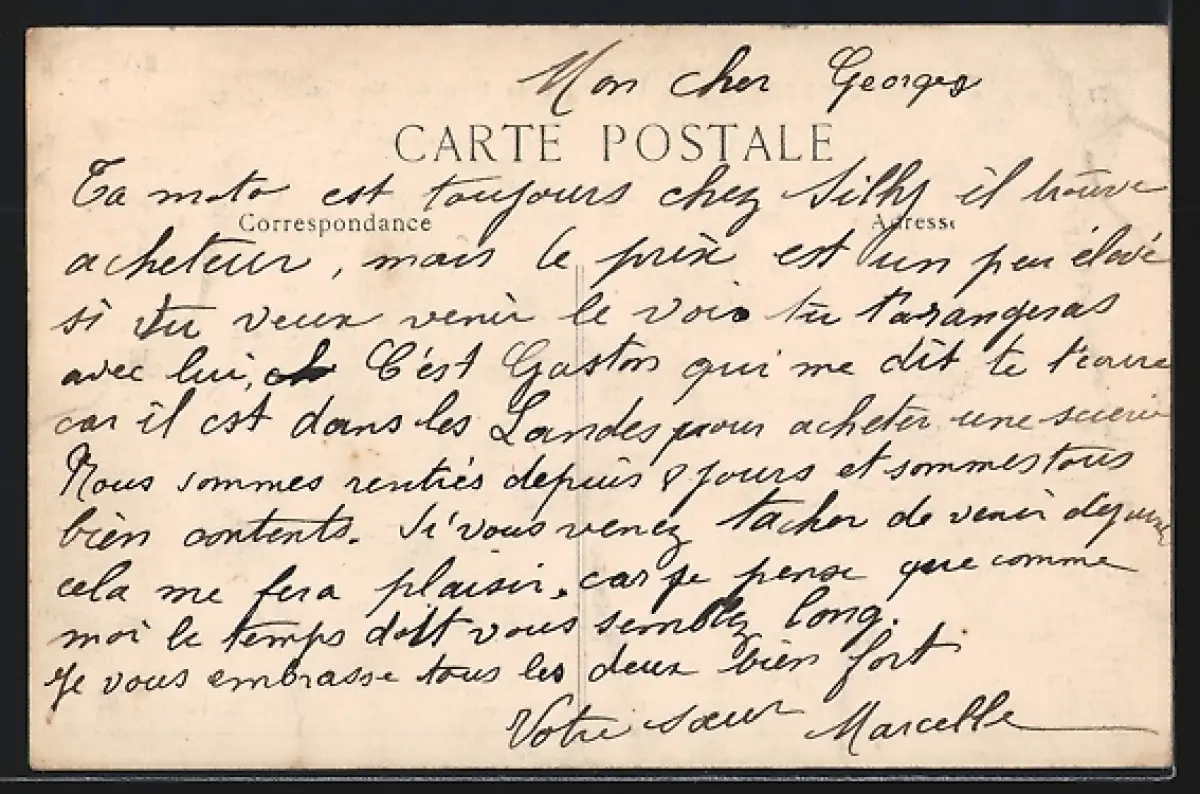 Mon cher Georges
CARTE POSTALE
Ta moto est toujours chez Silhy il trouve
Correspondance
Adresse
acheteur, mais le prix est un peu élevé
si tu veux venir le voir tu t'arangeras
avec lui, C'est Gaston qui me dit te l'ecrire
car il est dans les Landes pour acheter une scierie
Nous sommes rentrés depuis 8 jours et sommes tous
bien contents. Si vous venez tacher de venir dejeuner
cela me fera plaisir. car je pense que comme
moi le temps doit vous semblez long.
Je vous embrasse tous les deux bien fort
Votre sœur Marcelle